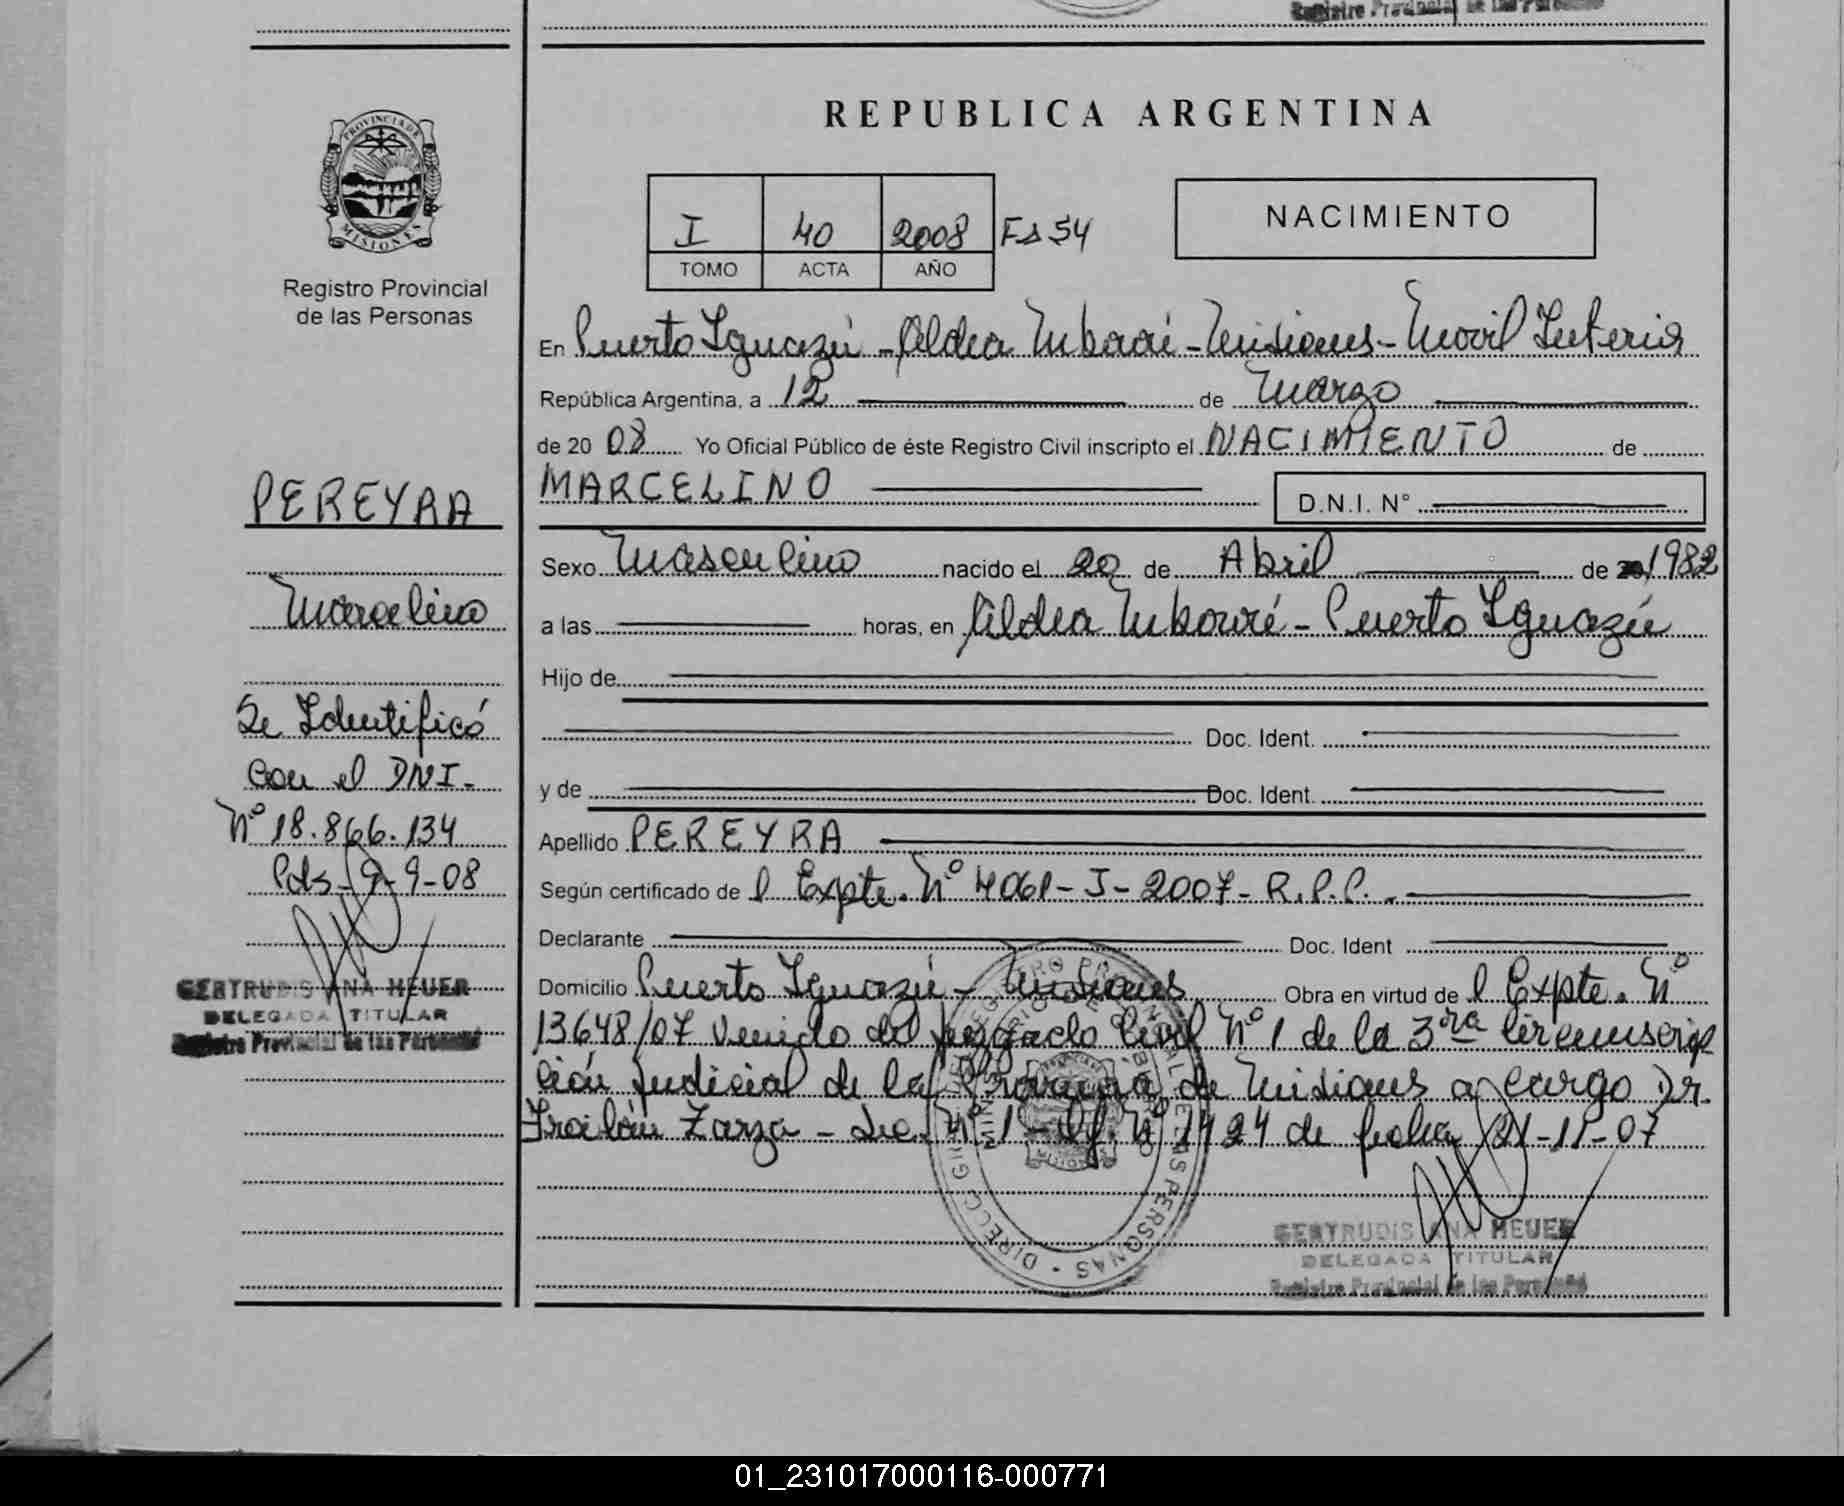 REPUBLICA ARGENTINA
PROVINCIA DE
MISIONES
Registro Provincial
de las Personas
I 40 2008 Fs 54
TOMO ACTA AÑO
NACIMIENTO
En Puerto Iguazú - Aldea Mbororé - Misiones - Movil Interior
República Argentina, a 12 de Marzo
de 20 08 Yo Oficial Público de éste Registro Civil inscripto el NACIMIENTO de
MARCELINO D.N.I. N°
Sexo Masculino nacido el 20 de Abril de 1982
a las horas, en Aldea Mbororé - Puerto Iguazú
Hijo de
Doc. Ident.
y de Doc. Ident.
Apellido PEREYRA
Según certificado de l Expte. N° 4061-I-2007-R.P.P.
Declarante Doc. Ident
Domicilio Puerto Iguazú - Misiones Obra en virtud de l Expte. N°
13648/07 Venido del Juzgado Civil N° 1 de la 3ra Circunscrip
ción Judicial de la Provincia de Misiones a cargo Dr.
Froilán Zarza - Sec. N° 1 - Of. N° 1424 de fecha 21-11-07
GERTRUDIS ANA HEUER
DELEGADA TITULAR
Registro Provincial de las Personas
PEREYRA
Marcelino
Se Identificó
con el DNI.
N° 18.866.134
Pds 9-9-08
GERTRUDIS ANA HEUER
DELEGADA TITULAR
Registro Provincial de las Personas
01_231017000116-000771